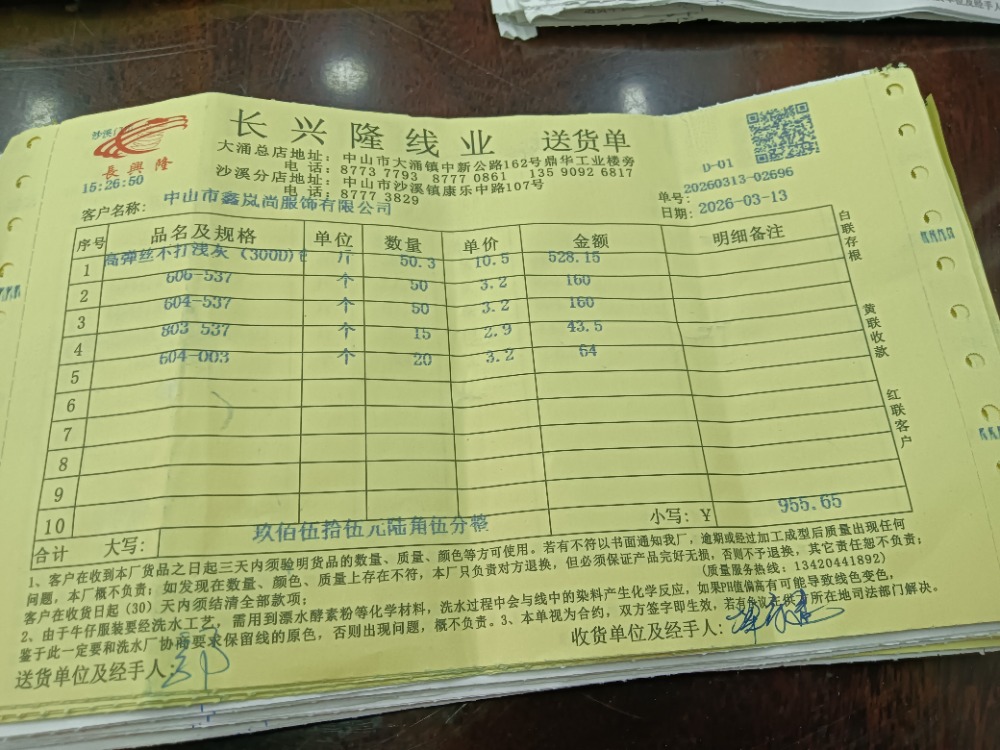 沙溪门
長興隆
15:26:50
长兴隆线业 送货单
大涌总店地址:中山市大涌镇中新公路162号鼎华工业楼旁
电 话:8773 7793 8777 0861 135 9092 6817
沙溪分店地址:中山市沙溪镇康乐中路107号
电 话:8777 3829
D-01
单号:20260313-02696
日期:2026-03-13
客户名称:中山市鑫岚尚服饰有限公司
序号 品名及规格 单位 数量 单价 金额 明细备注
1 高弹丝不打浅灰(300D) 斤 50.3 10.5 528.15
2 606-537 个 50 3.2 160
3 604-537 个 50 3.2 160
4 803-537 个 15 2.9 43.5
5 604-003 个 20 3.2 64
6
7
8
9
10
合计 大写:玖佰伍拾伍元陆角伍分整 小写:Y 955.65
白联存根
黄联收款
红联客户
1、客户在收到本厂货品之日起三天内须验明货品的数量、质量、颜色等方可使用。若有不符以书面通知我厂,逾期或经过加工成型后质量出现任何
问题,本厂概不负责;如发现在数量、颜色、质量上存在不符,本厂只负责对方退换,但必须保证产品完好无损,否则不予退换,其它责任恕不负责;
客户在收货日起(30)天内须结清全部款项; (质量服务热线:13420441892)
2、由于牛仔服装要经洗水工艺,需用到漂水酵素粉等化学材料,洗水过程中会与线中的染料产生化学反应,如果PH值偏高有可能导致线色变色,
鉴于此一定要和洗水厂协商要求保留线的原色,否则出现问题,概不负责。3、本单视为合约,双方签字即生效,若有争议在供方所在地司法部门解决。
送货单位及经手人:
收货单位及经手人: